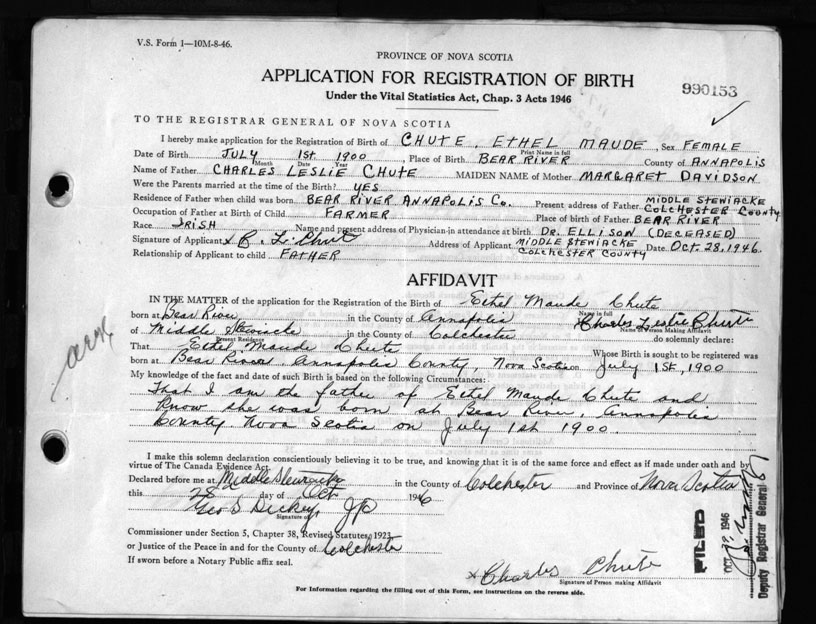 V.S. Form 1—10M-8-46.
PROVINCE OF NOVA SCOTIA
APPLICATION FOR REGISTRATION OF BIRTH
990153
Under the Vital Statistics Act, Chap. 3 Acts 1946
TO THE REGISTRAR GENERAL OF NOVA SCOTIA
I hereby make application for the Registration of Birth of CHUTE, ETHEL MAUDE, Sex FEMALE
Print Name in full
Date of Birth JULY 1ST 1900, Place of Birth BEAR RIVER County of ANNAPOLIS
Month Date Year
Name of Father CHARLES LESLIE CHUTE MAIDEN NAME of Mother MARGARET DAVIDSON
Were the Parents married at the time of the Birth? YES
Residence of Father when child was born BEAR RIVER ANNAPOLIS Co. Present address of Father MIDDLE STEWIACKE COLCHESTER COUNTY
Occupation of Father at Birth of Child FARMER Place of birth of Father BEAR RIVER
Race IRISH Name and present address of Physician in attendance at birth DR. ELLISON (DECEASED)
Signature of Applicant x C. L. Chute Address of Applicant MIDDLE STEWIACKE COLCHESTER COUNTY Date OCT. 28, 1946.
Relationship of Applicant to child FATHER
AFFIDAVIT
IN THE MATTER of the application for the Registration of the Birth of Ethel Maude Chute
Name in full
born at Bear River in the County of Annapolis Charles Leslie Chute
Name of Person Making Affidavit
of Middle Stewiacke in the County of Colchester do solemnly declare:
Present Residence
That Ethel Maude Chute Whose Birth is sought to be registered was
born at Bear River Annapolis County, Nova Scotia on July 1st, 1900
My knowledge of the fact and date of such Birth is based on the following Circumstances:
That I am the father of Ethel Maude Chute and
know she was born at Bear River, Annapolis
County Nova Scotia on July 1st 1900.
I make this solemn declaration conscientiously believing it to be true, and knowing that it is of the same force and effect as if made under oath and by
virtue of The Canada Evidence Act.
Declared before me at Middle Stewiacke in the County of Colchester and Province of Nova Scotia
this 28 day of Oct 1946
Geo S Dickey JP
Signature of
Commissioner under Section 5, Chapter 38, Revised Statutes 1923
or Justice of the Peace in and for the County of Colchester
If sworn before a Notary Public affix seal.
x Charles Chute
Signature of Person making Affidavit
For Information regarding the filling out of this Form, see instructions on the reverse side.
FILED
1946
Deputy Registrar General